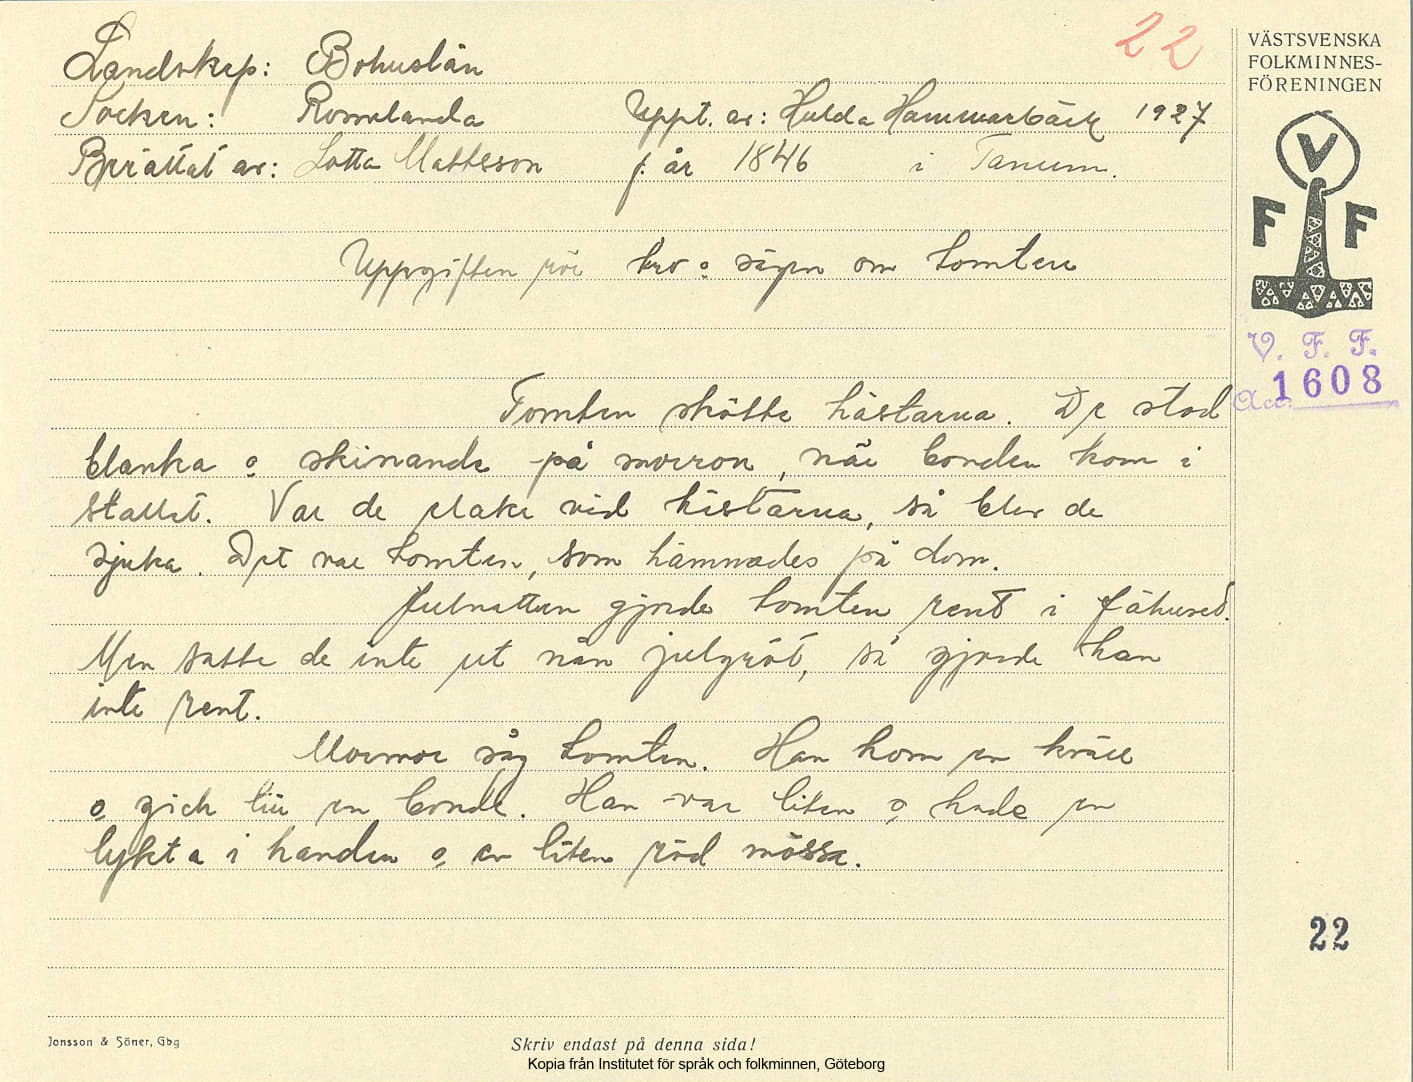 22
Landskap: Bohuslän
Socken: Romelanda Uppt. av: Hulda Hammarbäck 1927
Berättat av: Lotta Mattsson f. år 1846 i Tanum.
Uppgiften rör tro o sägen om tomten
Tomten skötte hästarna. De stod
blanka o skinande på morron, när bonden kom i
stallet. Var de elaka vid hästarna, så blev de
sjuka. Det var tomten, som hämnades på dom.
Julnatten gjorde tomten rent i fähuset.
Men satte de inte ut nån julgröt, så gjorde han
inte rent.
Mormor såg tomten. Han kom en kväll
o gick till en bonde. Han var liten o hade en
lykta i handen o en liten röd mössa.
VÄSTSVENSKA
FOLKMINNES-
FÖRENINGEN
V
F F
V. F. F.
Acc. 1608
22
Jonsson & Söner, Gbg
Skriv endast på denna sida!
Kopia från Institutet för språk och folkminnen, Göteborg